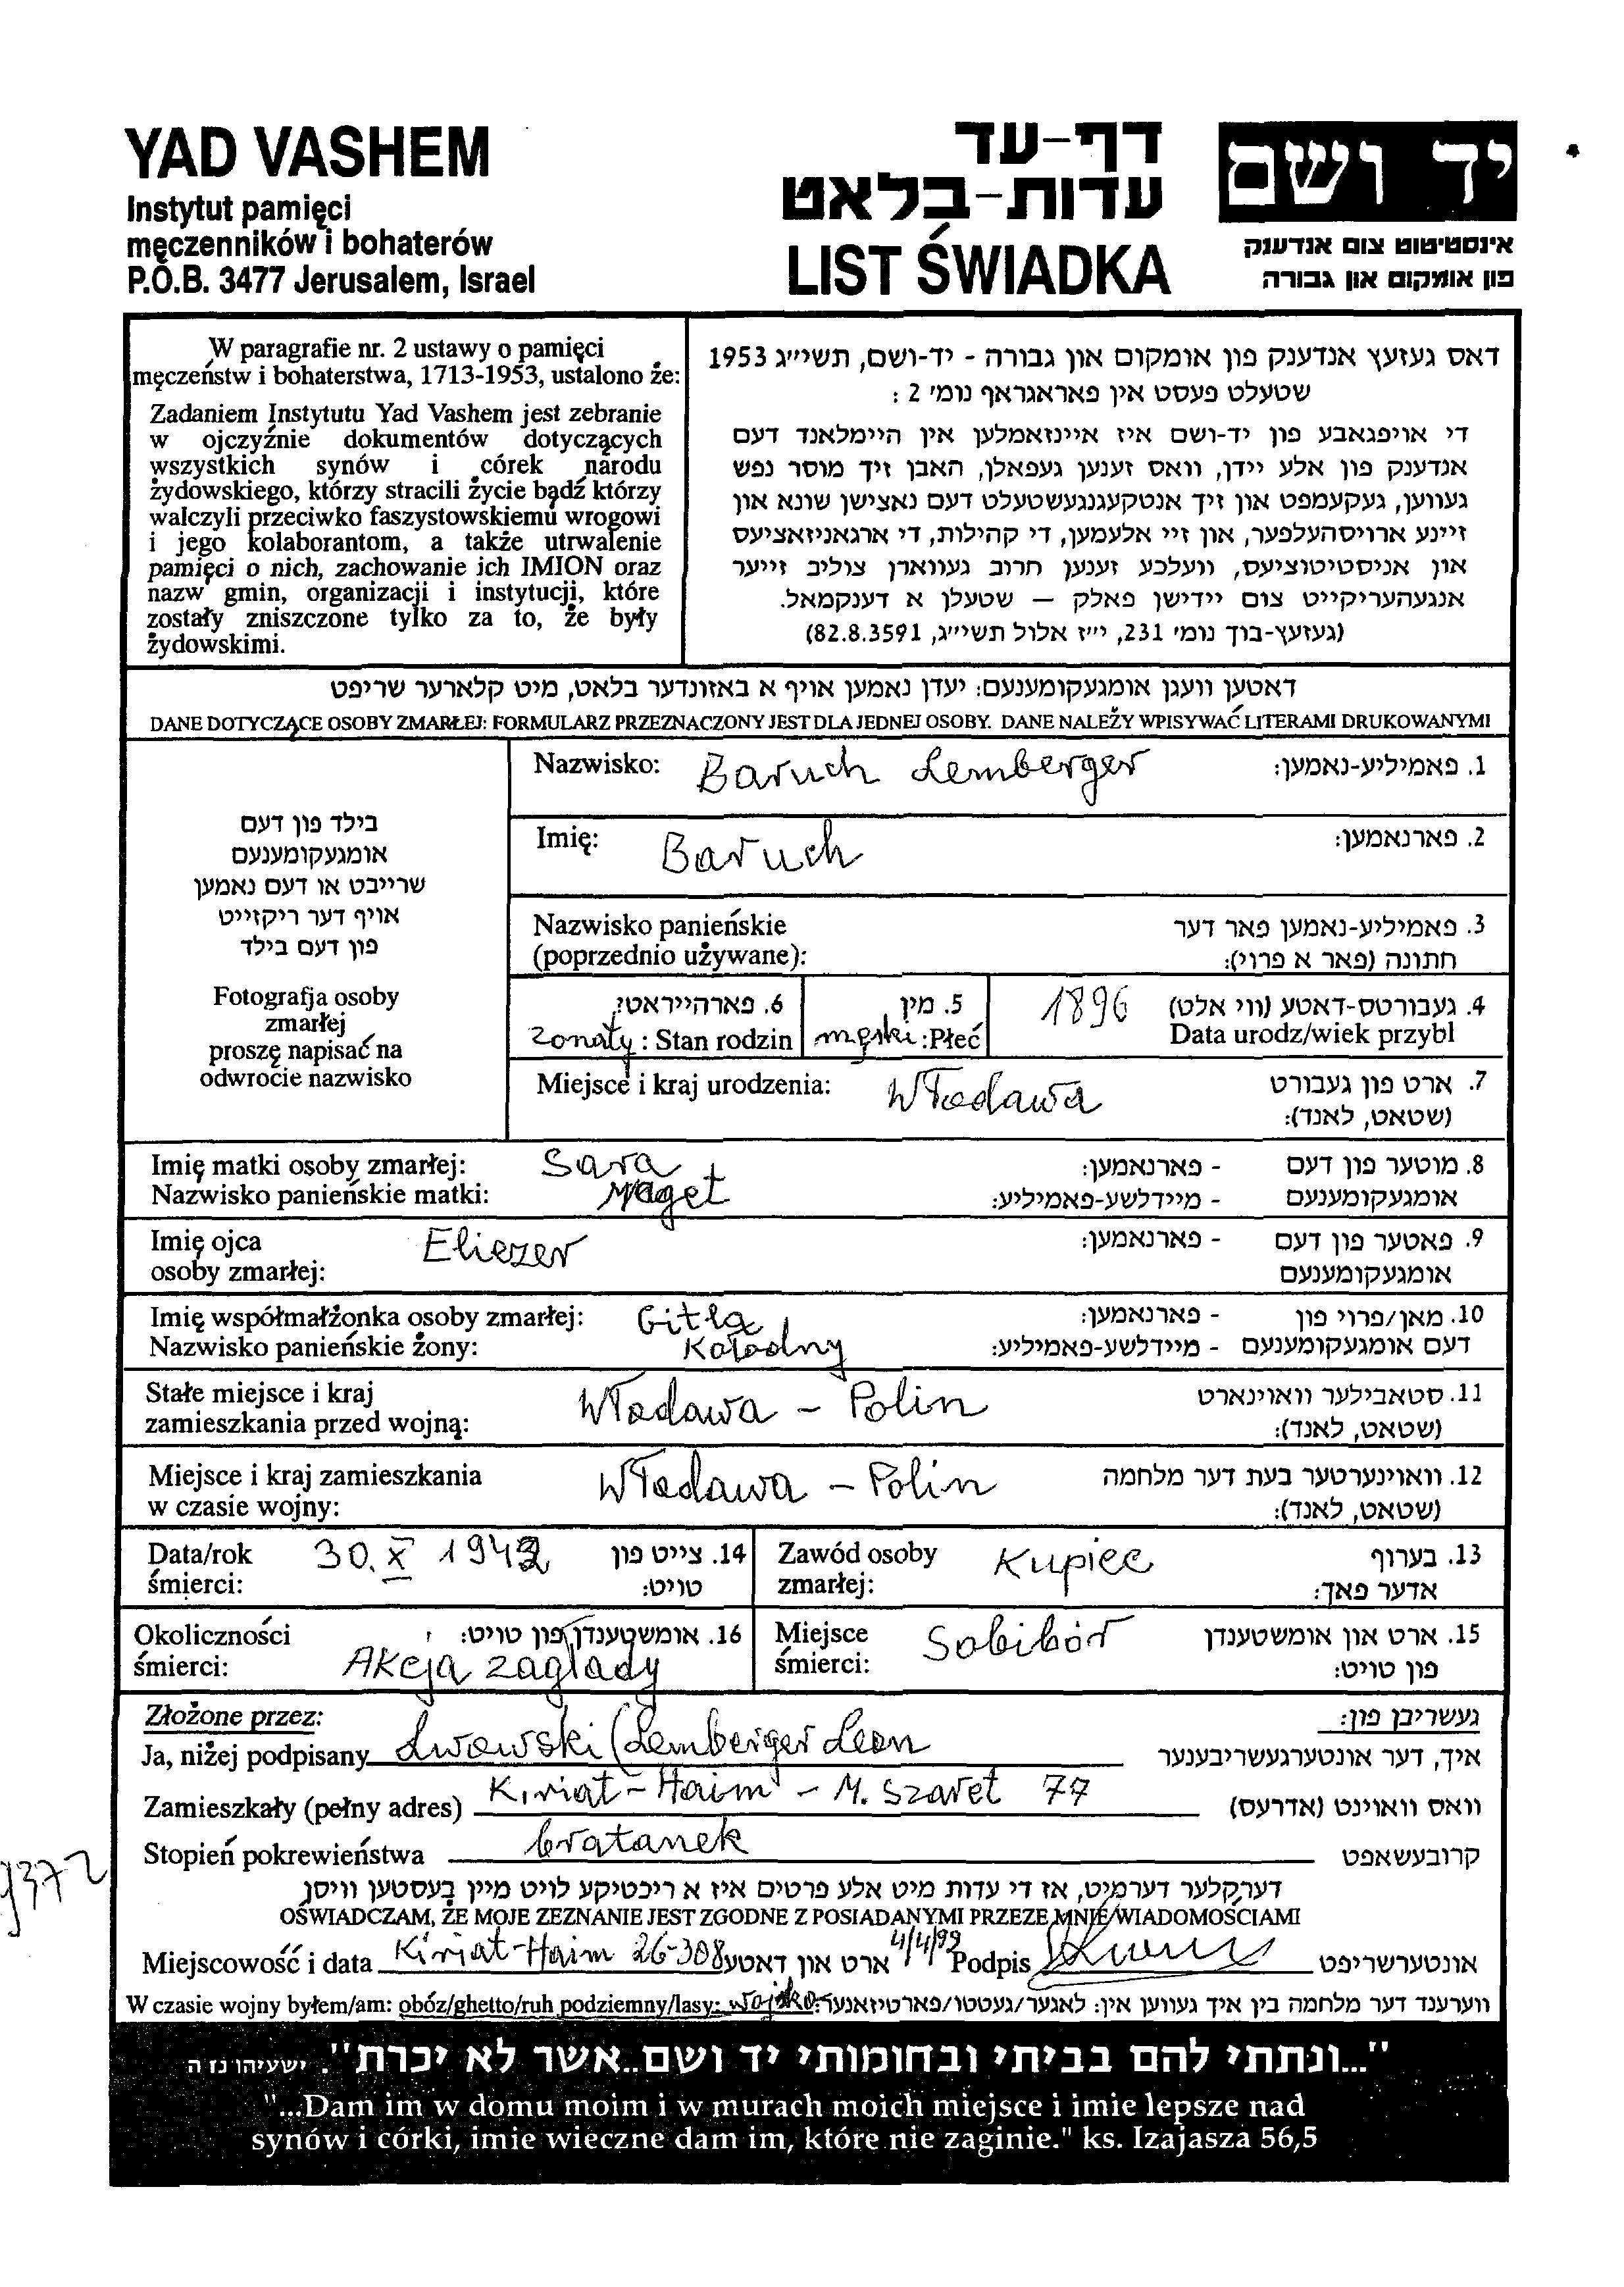 YAD VASHEM
Instytut pamięci
męczenników i bohaterów
P.O.B. 3477 Jerusalem, Israel
דף-עד
עדות-בלאט
LIST ŚWIADKA
יד ושם
אינסטיטוט צום אנדענק
פון אומקום און גבורה
W paragrafie nr. 2 ustawy o pamięci
męczeństw i bohaterstwa, 1713-1953, ustalono że:
Zadaniem Instytutu Yad Vashem jest zebranie
w ojczyźnie dokumentów dotyczących
wszystkich synów i córek narodu
żydowskiego, którzy stracili życie bądź którzy
walczyli przeciwko faszystowskiemu wrogowi
i jego kolaborantom, a także utrwalenie
pamięci o nich, zachowanie ich IMION oraz
nazw gmin, organizacji i instytucji, które
zostały zniszczone tylko za to, że były
żydowskimi.
דאס געזעץ אנדענק פון אומקום און גבורה - יד-ושם, תשי״ג 1953
שטעלט פעסט אין פאראגראף נומ׳ 2 :
די אויפגאבע פון יד-ושם איז איינזאמלען אין היימלאנד דעם
אנדענק פון אלע יידן, וואס זענען געפאלן, האבן זיך מוסר נפש
געווען, געקעמפט און זיך אנטקעגנגעשטעלט דעם נאצישן שונא און
זיינע ארויסהעלפער, און זיי אלעמען, די קהילות, די ארגאניזאציעס
און אניסטיטוציעס, וועלכע זענען חרוב געווארן צוליב זייער
אנגעהעריקייט צום יידישן פאלק — שטעלן א דענקמאל.
(געזעץ-בוך נומ׳ 231, י״ז אלול תשי״ג, 82.8.3591)
דאטען וועגן אומגעקומענעם: יעדן נאמען אויף א באזונדער בלאט, מיט קלארער שריפט
DANE DOTYCZĄCE OSOBY ZMARŁEJ: FORMULARZ PRZEZNACZONY JEST DLA JEDNEJ OSOBY. DANE NALEŻY WPISYWAĆ LITERAMI DRUKOWANYMI
בילד פון דעם
אומגעקומענעם
שרייבט או דעם נאמען
אויף דער ריקזייט
פון דעם בילד
Fotografja osoby
zmarłej
proszę napisać na
odwrocie nazwisko
Nazwisko: Baruch Lemberger 1. פאמיליע-נאמען:
Imię: Baruch 2. פארנאמען:
Nazwisko panieńskie 3. פאמיליע-נאמען פאר דער
(poprzednio używane): חתונה (פאר א פרוי):
6. פארהייראט?: 5. מין 1896 4. געבורטס-דאטע (ווי אלט)
żonaty : Stan rodzin męski :Płeć Data urodz/wiek przybl
Miejsce i kraj urodzenia: Włodawa 7. ארט פון געבורט
(שטאט, לאנד):
Imię matki osoby zmarłej: Sara - פארנאמען: 8. מוטער פון דעם
Nazwisko panieńskie matki: Maget - מיידלשע-פאמיליע: אומגעקומענעם
Imię ojca Eliezer - פארנאמען: 9. פאטער פון דעם
osoby zmarłej: אומגעקומענעם
Imię współmałżonka osoby zmarłej: Gitla - פארנאמען: 10. מאן/פרוי פון
Nazwisko panieńskie żony: Kołodny - מיידלשע-פאמיליע: דעם אומגעקומענעם
Stałe miejsce i kraj Włodawa - Polin 11. סטאבילער וואוינארט
zamieszkania przed wojną: (שטאט, לאנד):
Miejsce i kraj zamieszkania Włodawa - Polin 12. וואוינערטער בעת דער מלחמה
w czasie wojny: (שטאט, לאנד):
Data/rok 30. X 1942 14. צייט פון Zawód osoby Kupiec 13. בערוף
śmierci: טויט: zmarłej: אדער פאך:
Okoliczności 16. אומשטענדן פון טויט: Miejsce Sobibór 15. ארט און אומשטענדן
śmierci: Akcja zagłady śmierci: פון טויט:
Złożone przez: געשריבן פון:
Ja, niżej podpisany Lwowski (Lemberger Leon איך, דער אונטערגעשריבענער
Zamieszkały (pełny adres) Kiriat-Haim - M. Szaret 77 וואס וואוינט (אדרעס)
Stopień pokrewieństwa bratanek קרובעשאפט
דערקלער דערמיט, אז די עדות מיט אלע פרטים איז א ריכטיקע לויט מיין בעסטען וויסן
OŚWIADCZAM, ŻE MOJE ZEZNANIE JEST ZGODNE Z POSIADANYMI PRZEZE MNIE WIADOMOŚCIAMI
Miejscowość i data Kiriat-Haim 26-308 ארט און דאטע 4/4/99 Podpis אונטערשריפט
W czasie wojny byłem/am: obóz/ghetto/ruh podziemny/lasy: wojsko ווערענד דער מלחמה בין איך געווען אין: לאגער/געטטו/פארטיזאנער:
"...ונתתי להם בביתי ובחומותי יד ושם..אשר לא יכרת". ישעיהו נז ה
"...Dam im w domu moim i w murach moich miejsce i imie lepsze nad
synów i córki, imie wieczne dam im, które nie zaginie." ks. Izajasza 56,5